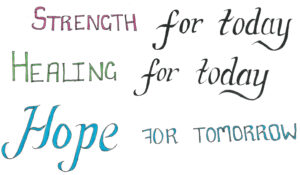 STRENGTH for today
HEALING for today
Hope FOR TOMORROW